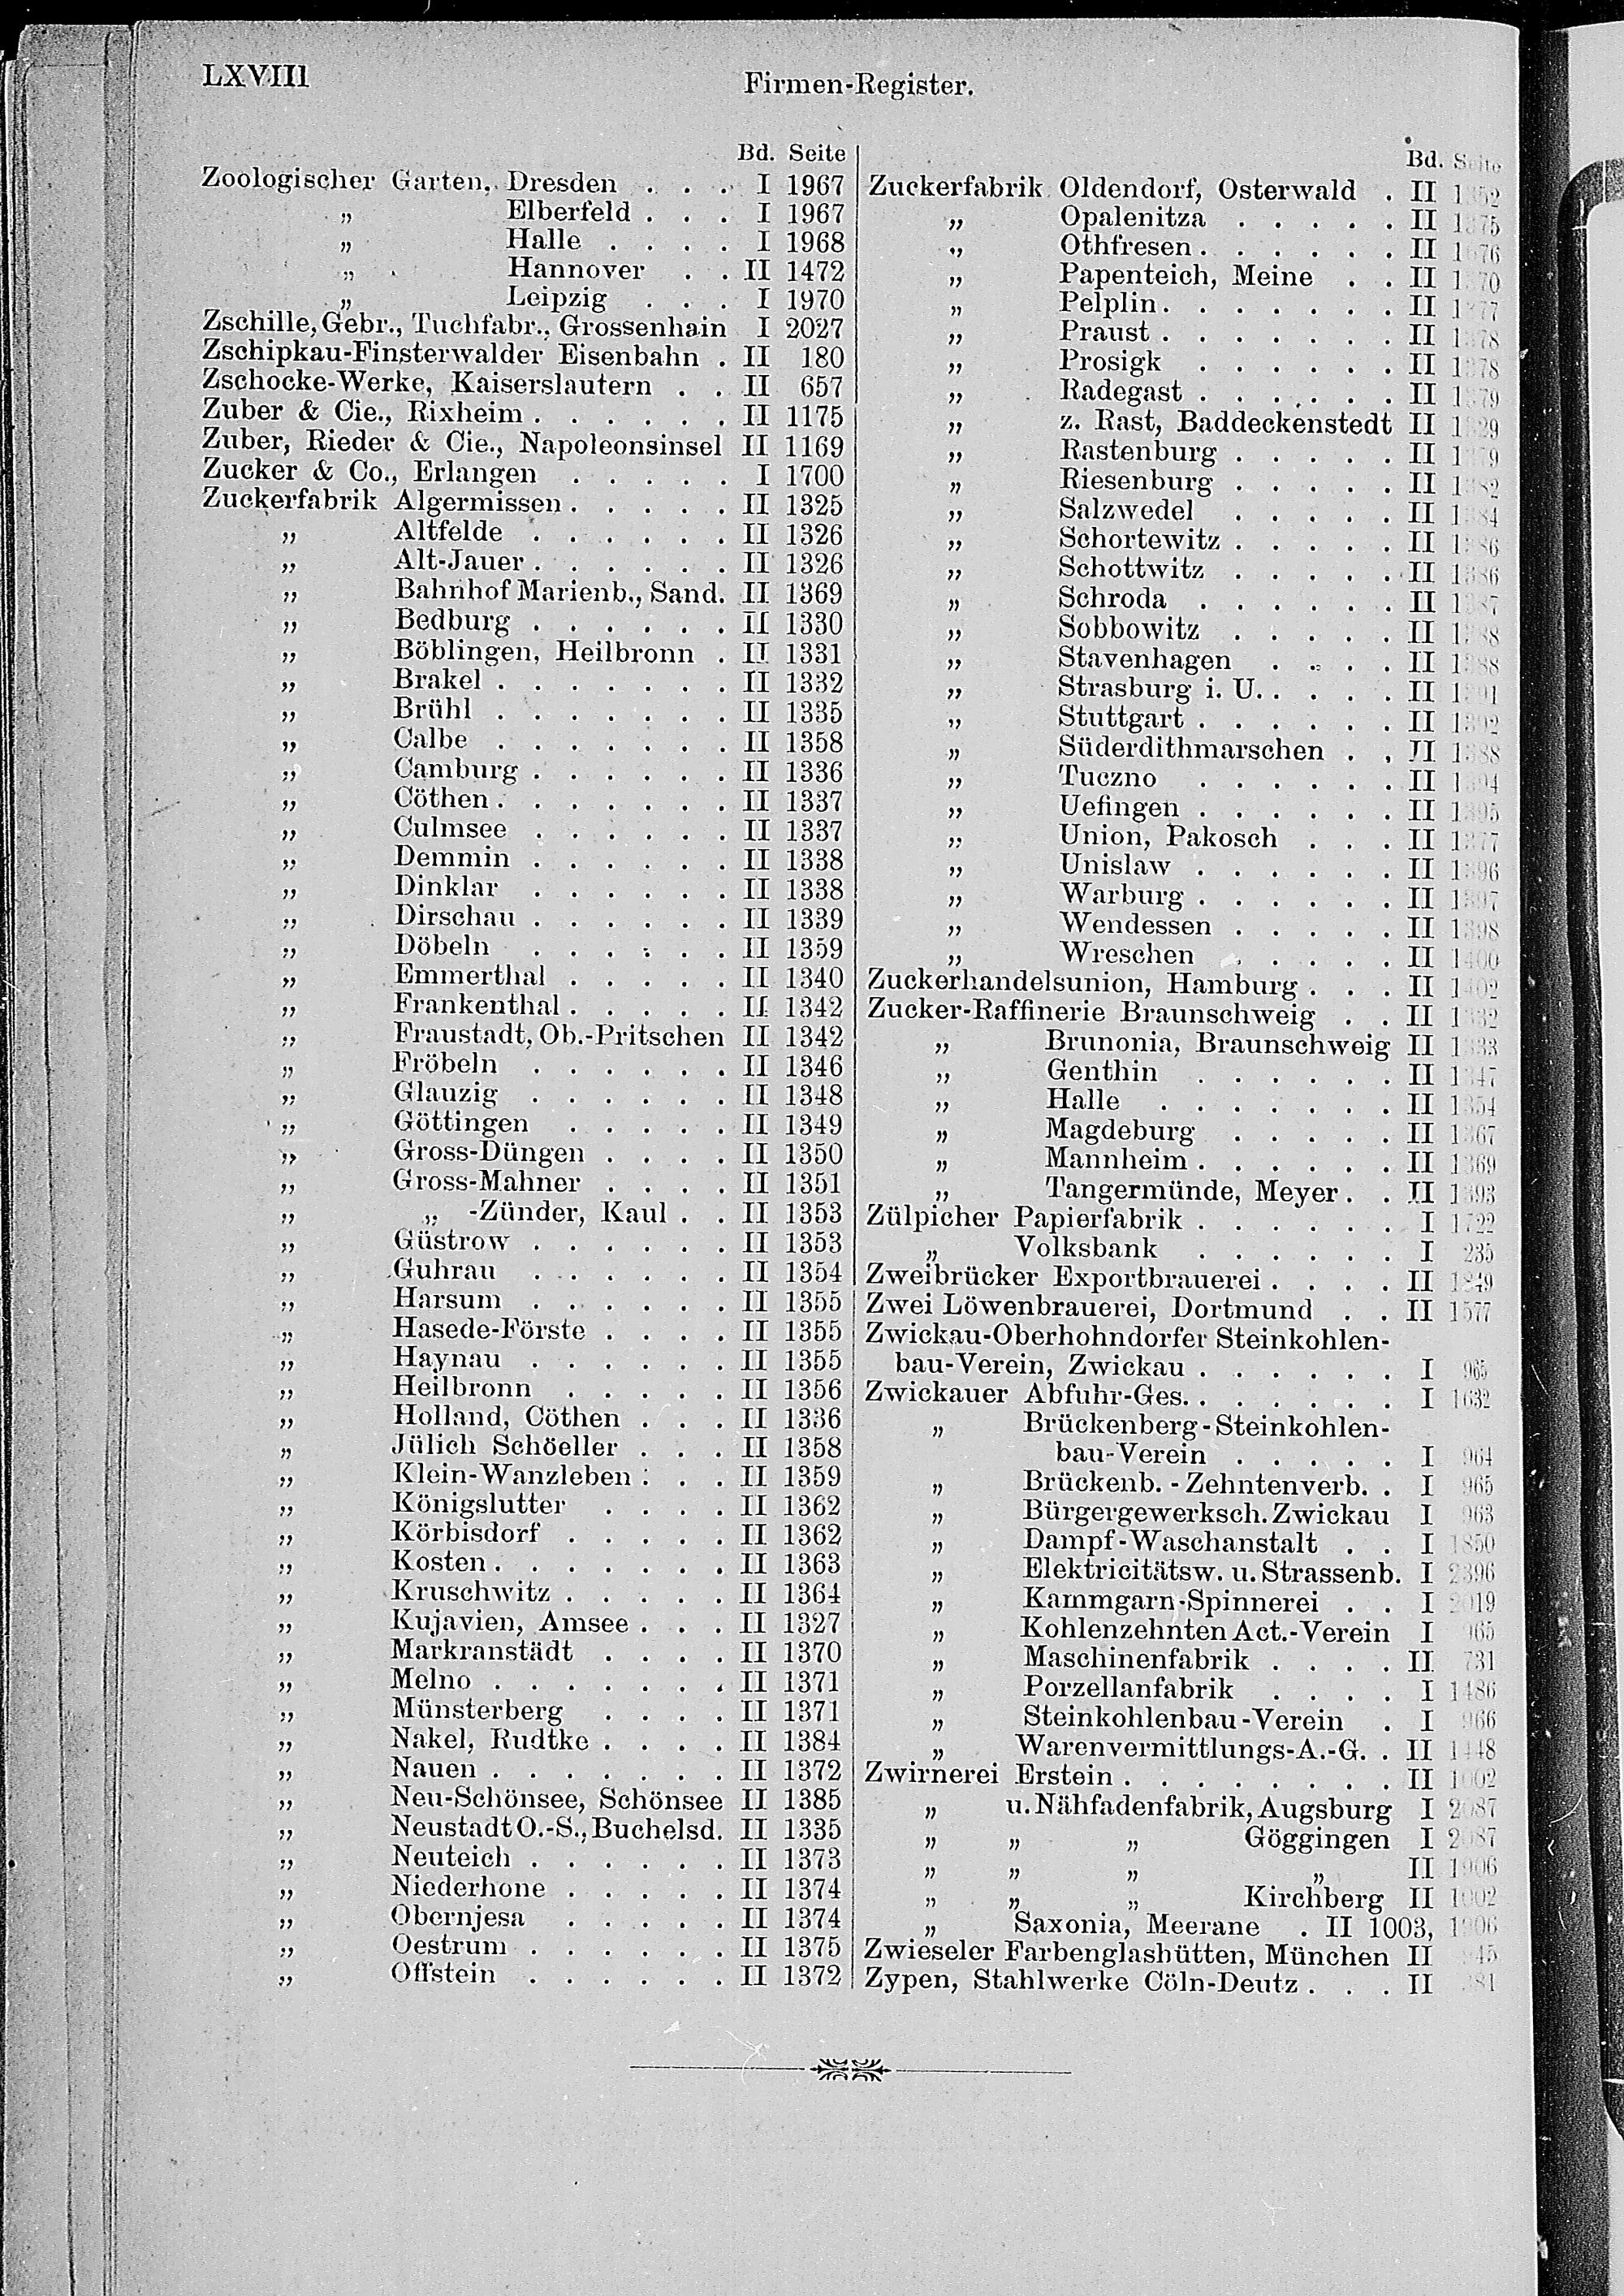 LXVIII
Firmen-Register.
Bd. Seite
Zoologischer Garten, Dresden . . . I 1967
„ Elberfeld . . . I 1967
„ Halle . . . . I 1968
„ Hannover . . II 1472
„ Leipzig . . . I 1970
Zschille, Gebr., Tuchfabr., Grossenhain I 2027
Zschipkau-Finsterwalder Eisenbahn . II 180
Zschocke-Werke, Kaiserslautern . . II 657
Zuber & Cie., Rixheim . . . . . . II 1175
Zuber, Rieder & Cie., Napoleonsinsel II 1169
Zucker & Co., Erlangen . . . . . I 1700
Zuckerfabrik Algermissen . . . . . II 1325
„ Altfelde . . . . . . II 1326
„ Alt-Jauer . . . . . . II 1326
„ Bahnhof Marienb., Sand. II 1369
„ Bedburg . . . . . . II 1330
„ Böblingen, Heilbronn . II 1331
„ Brakel . . . . . . . II 1332
„ Brühl . . . . . . . II 1335
„ Calbe . . . . . . . II 1358
„ Camburg . . . . . . II 1336
„ Cöthen . . . . . . . II 1337
„ Culmsee . . . . . . II 1337
„ Demmin . . . . . . II 1338
„ Dinklar . . . . . . II 1338
„ Dirschau . . . . . . II 1339
„ Döbeln . . . . . . II 1359
„ Emmerthal . . . . . II 1340
„ Frankenthal . . . . . II 1342
„ Fraustadt, Ob.-Pritschen II 1342
„ Fröbeln . . . . . . II 1346
„ Glauzig . . . . . . II 1348
„ Göttingen . . . . . II 1349
„ Gross-Düngen . . . . II 1350
„ Gross-Mahner . . . . II 1351
„ „ -Zünder, Kaul . . II 1353
„ Güstrow . . . . . . II 1353
„ Guhrau . . . . . . II 1354
„ Harsum . . . . . . II 1355
„ Hasede-Förste . . . . II 1355
„ Haynau . . . . . . II 1355
„ Heilbronn . . . . . II 1356
„ Holland, Cöthen . . . II 1336
„ Jülich Schöeller . . . II 1358
„ Klein-Wanzleben . . . II 1359
„ Königslutter . . . . II 1362
„ Körbisdorf . . . . . II 1362
„ Kosten . . . . . . . II 1363
„ Kruschwitz . . . . . II 1364
„ Kujavien, Amsee . . . II 1327
„ Markranstädt . . . . II 1370
„ Melno . . . . . . . II 1371
„ Münsterberg . . . . II 1371
„ Nakel, Rudtke . . . . II 1384
„ Nauen . . . . . . . II 1372
„ Neu-Schönsee, Schönsee II 1385
„ Neustadt O.-S., Buchelsd. II 1335
„ Neuteich . . . . . . II 1373
„ Niederhone . . . . . II 1374
„ Obernjesa . . . . . II 1374
„ Oestrum . . . . . . II 1375
„ Offstein . . . . . . II 1372
Bd. Seite
Zuckerfabrik Oldendorf, Osterwald . II
„ Opalenitza . . . . . II 1375
„ Othfresen . . . . . . II 1376
„ Papenteich, Meine . . II 1370
„ Pelplin . . . . . . . II 1377
„ Praust . . . . . . . II 1378
„ Prosigk . . . . . . II 1378
„ Radegast . . . . . . II 1379
„ z. Rast, Baddeckenstedt II 1329
„ Rastenburg . . . . . II 1379
„ Riesenburg . . . . . II 1382
„ Salzwedel . . . . . II 1384
„ Schortewitz . . . . . II 1386
„ Schottwitz . . . . . II 1386
„ Schroda . . . . . . II 1387
„ Sobbowitz . . . . . II 1388
„ Stavenhagen . . . . II 1388
„ Strasburg i. U. . . . . II 1391
„ Stuttgart . . . . . . II 1392
„ Süderdithmarschen . . II 1388
„ Tuczno . . . . . . II 1394
„ Uefingen . . . . . . II 1395
„ Union, Pakosch . . . II 1377
„ Unislaw . . . . . . II 1396
„ Warburg . . . . . . II 1397
„ Wendessen . . . . . II 1398
„ Wreschen . . . . . II 1400
Zuckerhandelsunion, Hamburg . . . II 1402
Zucker-Raffinerie Braunschweig . . II 1332
„ Brunonia, Braunschweig II 1333
„ Genthin . . . . . . II 1347
„ Halle . . . . . . . II 1354
„ Magdeburg . . . . . II 1367
„ Mannheim . . . . . . II 1369
„ Tangermünde, Meyer . . II 1393
Zülpicher Papierfabrik . . . . . . I 1722
„ Volksbank . . . . . . I 235
Zweibrücker Exportbrauerei . . . . II 1849
Zwei Löwenbrauerei, Dortmund . . II 1577
Zwickau-Oberhohndorfer Steinkohlen-
bau-Verein, Zwickau . . . . . . I 965
Zwickauer Abfuhr-Ges. . . . . . . I 1632
„ Brückenberg-Steinkohlen-
bau-Verein . . . . . I 964
„ Brückenb.-Zehntenverb. . I 965
„ Bürgergewerksch. Zwickau I 963
„ Dampf-Waschanstalt . . I 1850
„ Elektricitätsw. u. Strassenb. I 2396
„ Kammgarn-Spinnerei . . I 2019
„ Kohlenzehnten Act.-Verein I 965
„ Maschinenfabrik . . . . II 731
„ Porzellanfabrik . . . . I 1486
„ Steinkohlenbau-Verein . I 966
„ Warenvermittlungs-A.-G. . II 1448
Zwirnerei Erstein . . . . . . . . II 1002
„ u. Nähfadenfabrik, Augsburg I 2087
„ „ „ Göggingen I 2087
„ „ „ „ II 1906
„ „ „ Kirchberg II 1002
„ Saxonia, Meerane . II 1003, 1906
Zwieseler Farbenglashütten, München II
Zypen, Stahlwerke Cöln-Deutz . . . II